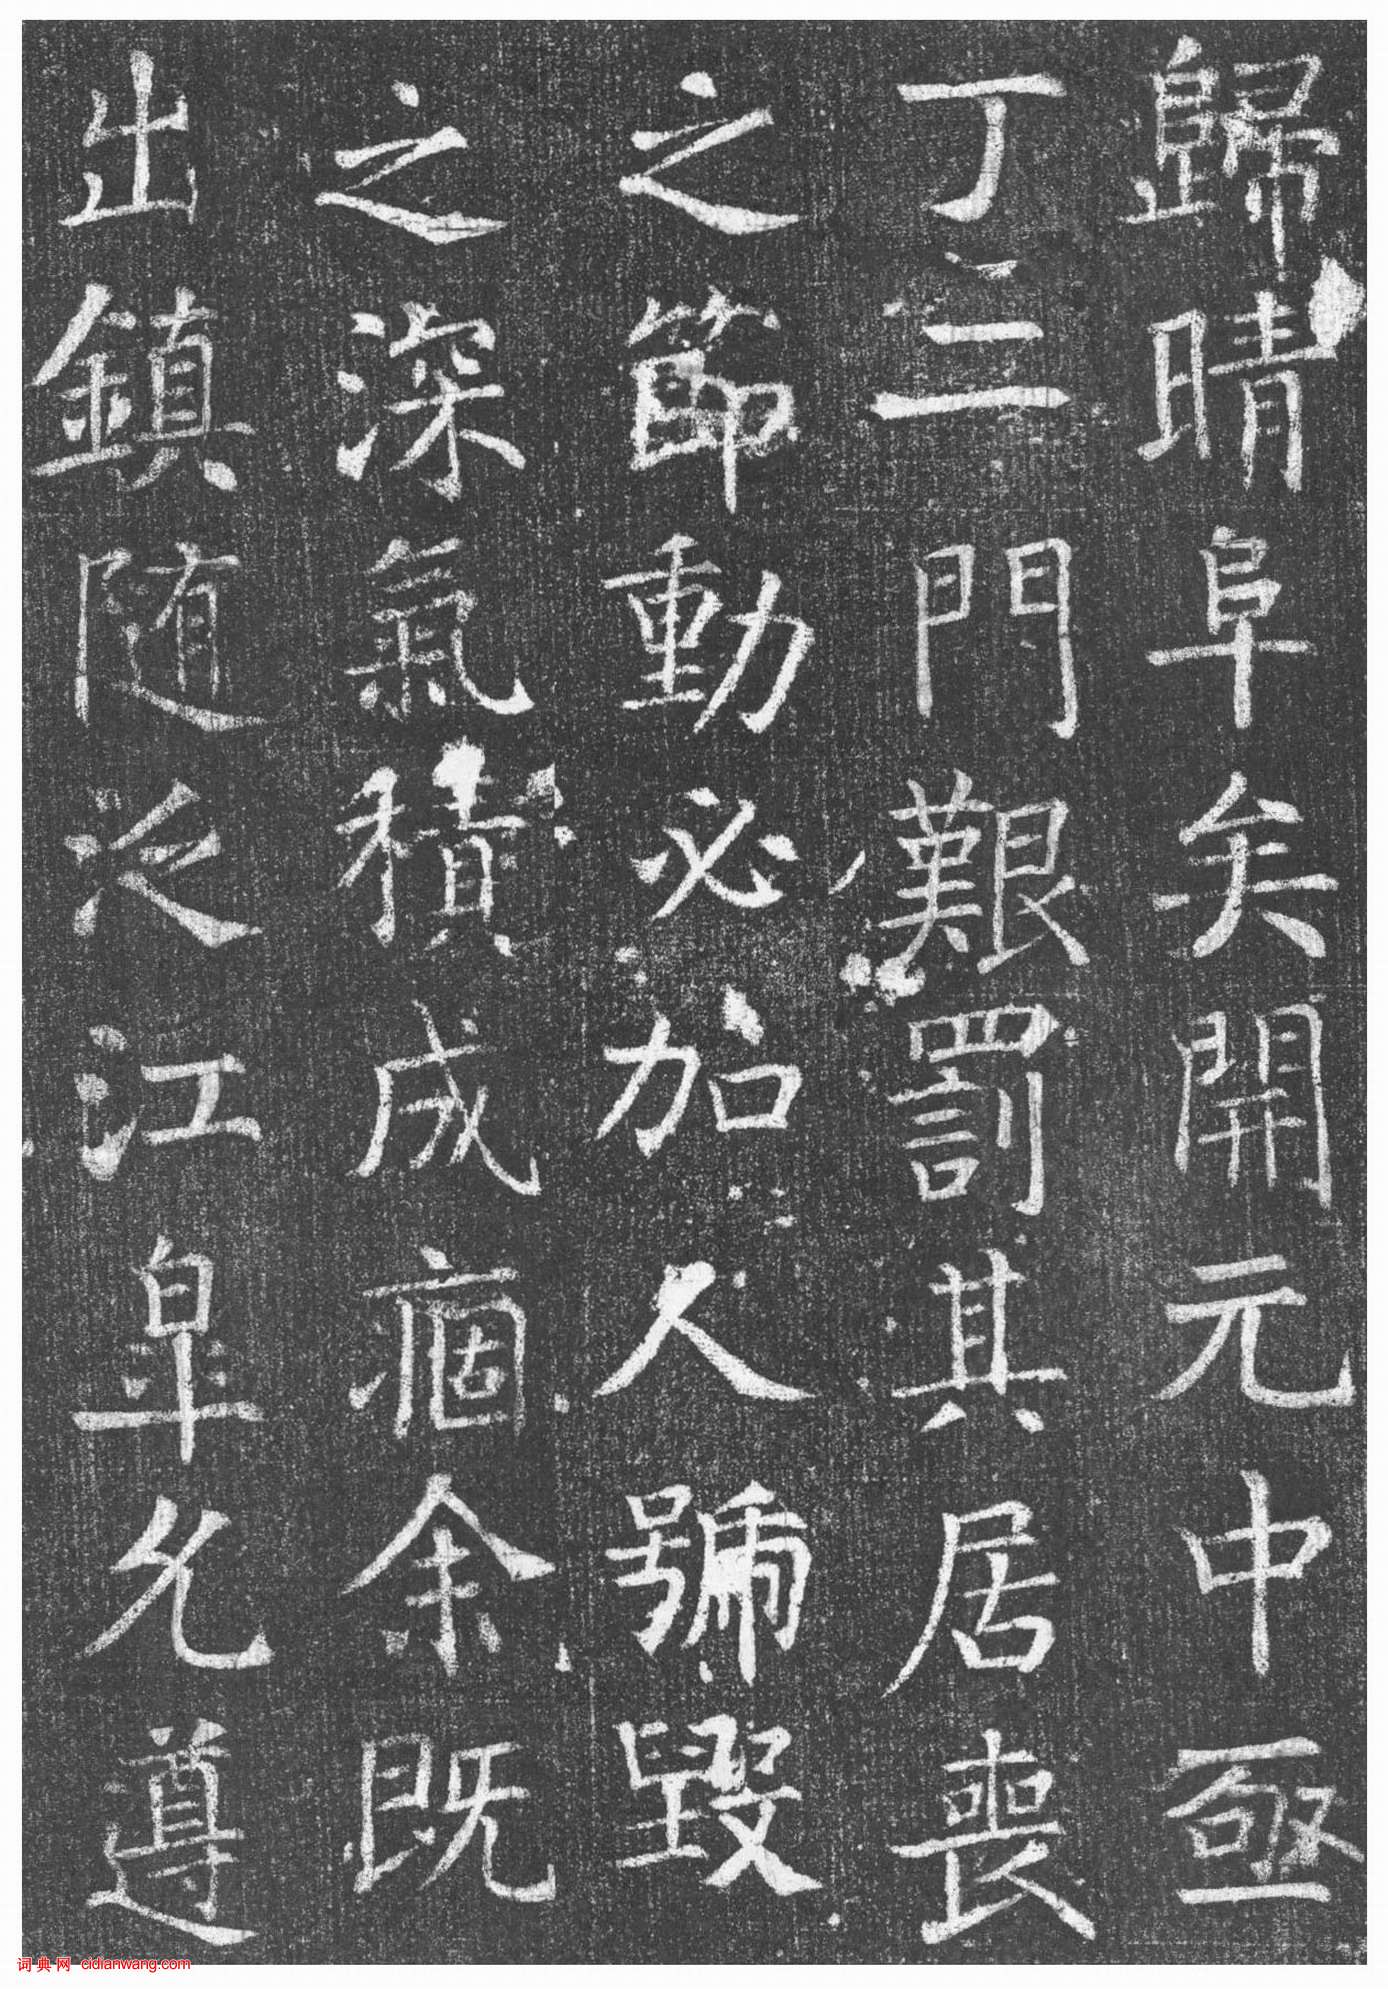 歸晴阜矣開元中亟
丁二門艱罰其居喪
之節動必加人號毀
之深氣積成痼余既
出鎮随泛江皐允遵
词典网 cidianwang.com